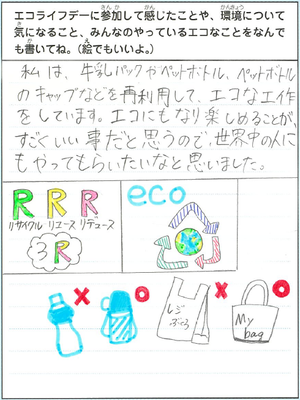 エコライフデーに参加して感じたことや、環境について
気になること、みんなのやっているエコなことをなんで
も書いてね。（絵でもいいよ。）
私は、牛乳パックやペットボトル、ペットボトル
のキャップなどを再利用して、エコな工作
をしています。エコにもなり楽しめることが、
すごくいい事だと思うので、世界中の人に
もやってもらいたいなと思いました。
R R R
リサイクル リユース リデュース
3R
eco
レジ
ぶくろ
My
bag